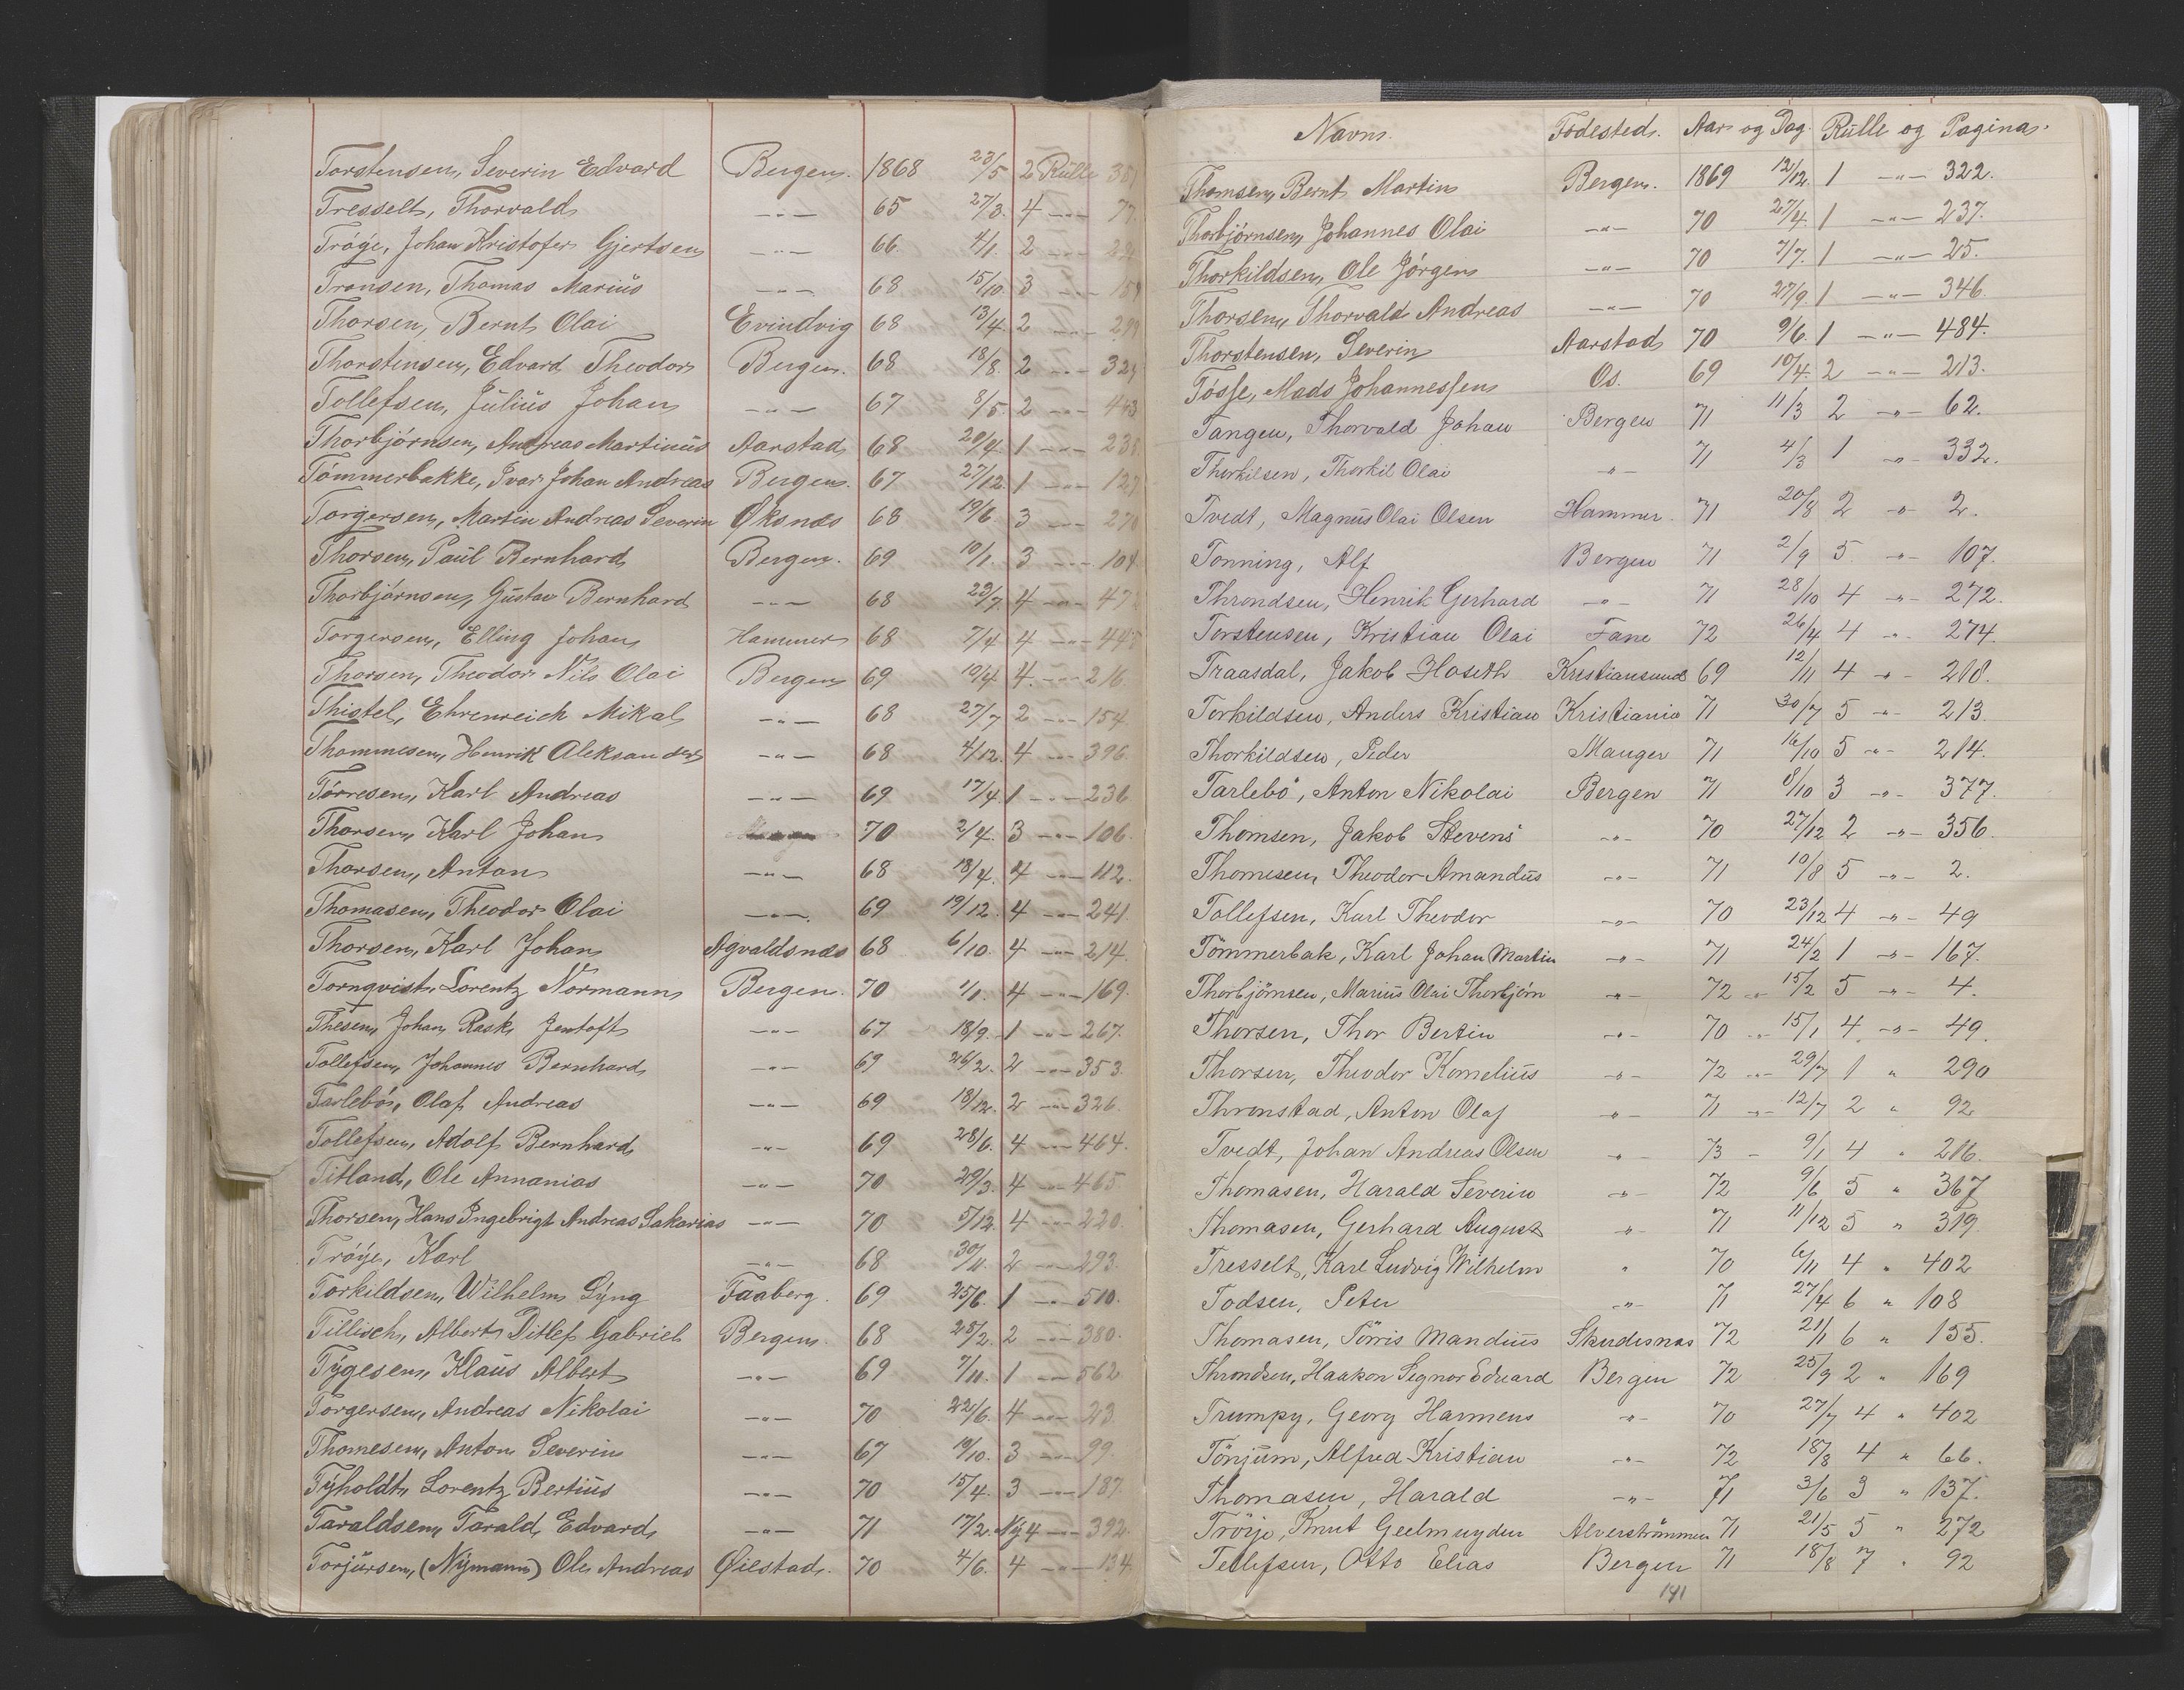 Torstensen, Severin Edvard Bergen. 1868 23/5 2 Rulle
Tresselt, Thorvald -"- 65 27/3. 4 -"-
Trøye, Johan Kristofer Gjertsen -"- 66. 4/1. 2 -"-
Tronsen, Thomas Marius -"- 68 15/10. 3 -"-
Thorsen, Bernt Olai Evindvig 68 13/4. 2 -"-
Thorstensen, Edvard Theodor Bergen. 68 18/8. 2 -"-
Tollefsen, Julius Johan -"- 67 8/5. 2 -"-
Thorbjørnsen, Andreas Martinus Aarstad 68 20/4. 1 -"-
Tømmerbakke, Ivar Johan Andreas Bergen. 67 27/12. 1 -"-
Torgersen, Martin Andreas Severin Øksnæs 68 19/6 3 -"-
Thorsen, Paul Bernhard Bergen. 69 10/1. 3 -"-
Thorbjørnsen, Gustav Bernhard -"- 68 23/7 4 -"-
Torgersen, Elling Johan Hammer 68 7/4 4 -"-
Thorsen, Theodor Nils Olai Bergen 69 10/4 4. -"- 216.
Thistel, Ehrenreich Mikal -"- 68 27/7 2 -"- 154.
Thommesen, Henrik Aleksander -"- 68 4/12. 4 -"- 396.
Tørresen, Karl Andreas -"- 69 17/4. 1 -"- 236
Thorsen, Karl Johan 70 2/4. 3 -"- 106.
Thorsen, Anton -"- 68 18/4. 4 -"- 112.
Thomasen, Theodor Olai -"- 69 19/12. 4 -"- 241.
Thorsen, Karl Johan Agvaldsnæs 68 6/10. 4 -"- 214.
Tornqvist, Lorentz Normann Bergen. 70 1/1. 4 -"- 169.
Thesen, Johan Rask Jentoft -"- 67 18/9. 1 -"- 267.
Tollefsen, Johannes Bernhard -"- 69 26/2. 2 -"- 353.
Tarlebø, Olaf Andreas -"- 69 18/12. 2 -"- 326.
Tollefsen, Adolf Bernhard -"- 69 28/6. 4 -"- 464.
Titland, Ole Annanias -"- 70 29/3. 4 -"- 465
Thorsen, Hans Ingebrigt Andreas Sakarias -"- 70 5/12. 4 -"- 220.
Trøye, Karl -"- 68 30/11. 2 -"- 293.
Torkildsen, Wilhelm Lyng Faaberg. 69 25/6. 1 -"- 510.
Tillisch, Albert Ditlef Gabriel Bergen. 68 28/2. 2 -"- 380.
Tygesen, Klaus Albert -"- 69 7/11. 1 -"- 562.
Torgersen, Andreas Nikolai -"- 70 22/6. 4 -"- 23.
Thomesen, Anton Severin -"- 67 19/10. 3 -"- 99.
Tyholdt, Lorentz Bertius -"- 70 15/4. 3 -"- 187.
Taraldsen, Tarald Edvard -"- 71 17/2. Ny 4 -"- 392.
Torjusen, (Nymann) Ole Andreas Øiestad. 70 4/6. 4 -"- 134.
Navn. Fødested. Aar og Dag. Rulle og Pagina.
Thomsen, Bernt Martin Bergen. 1869 12/12. 1 -"- 322.
Thorbjørnsen, Johannes Olai -"- 70 27/4. 1 -"- 237.
Thorkildsen, Ole Jørgen -"- 70 7/7. 1 -"- 25.
Thorsen, Thorvald Andreas -"- 70 27/9. 1 -"- 346.
Thorstensen, Severin Aarstad 70 9/6. 1 -"- 484.
Tøsse, Mads Johannessen Os. 69 10/4. 2 -"- 213.
Tangen, Thorvald Johan Bergen 71 11/3 2 -"- 62.
Thorkilsen, Thorkil Olai -"- 71 4/3 1 -"- 332.
Tvedt, Magnus Olai Olsen Hammer. 71 20/8 2 -"- 2.
Tonning, Alf Bergen 71 2/9 5 -"- 107.
Throndsen, Henrik Gerhard -"- 71 28/10 4 -"- 272.
Torstensen, Kristian Olai Fane 72 26/4 4 -"- 274.
Traasdal, Jakob Hoseth Kristiansund 69 12/11 4 -"- 218.
Torkildsen, Anders Kristian Kristiania 71 30/7 5 -"- 213.
Thorkildsen, Peder Manger 71 16/10 5 -"- 214.
Tarlebø, Anton Nikolai Bergen 71 8/10 3 -"- 377.
Thomsen, Jakob Stevens -"- 70 27/12 2 -"- 356.
Thomesen, Theodor Amandus -"- 71 10/8 5 -"- 2.
Tollefsen, Karl Theodor -"- 70 23/12 4 -"- 49
Tømmerbak, Karl Johan Martin -"- 71 24/2 1 -"- 167.
Thorbjørnsen, Marius Olai Thorbjørn -"- 72 -"- 15/2 5 -"- 4.
Thorsen, Thor Bertin -"- 70 -"- 15/1 4 -"- 49.
Thorsen, Theodor Kornelius -"- 72 -"- 29/7 1 " 290
Thronstad, Anton Olaf -"- 71 -"- 12/7 2 " 92
Tvedt, Johan Andreas Olsen -"- 73 - 9/1 4 " 216.
Thomasen, Harald Severin -"- 72 9/6 5 " 367
Thomasen, Gerhard August -"- 71 11/12 5 " 319
Tresselt, Karl Ludvig Wilhelm " 70 6/11 4 " 402
Todsen, Peter -"- 71 27/4 6 " 108
Thomasen, Tørris Mandius Skudesnæs 72 21/1 6 " 155.
Throndsen, Haakon Segnor Edvard Bergen 72 25/9 2 " 169
Trumpy, Georg Harmens -"- 70 27/7 4 " 402
Tønjum, Alfred Kristian -"- 72 18/8 4 " 66.
Thomasen, Harald -"- 71 3/6 3 " 137.
Trøije, Knut Geelmuyden Alverstrømmen 71 21/5 5 " 272
Tellefsen, Otto Elias Bergen 71 18/8 7 " 92
141